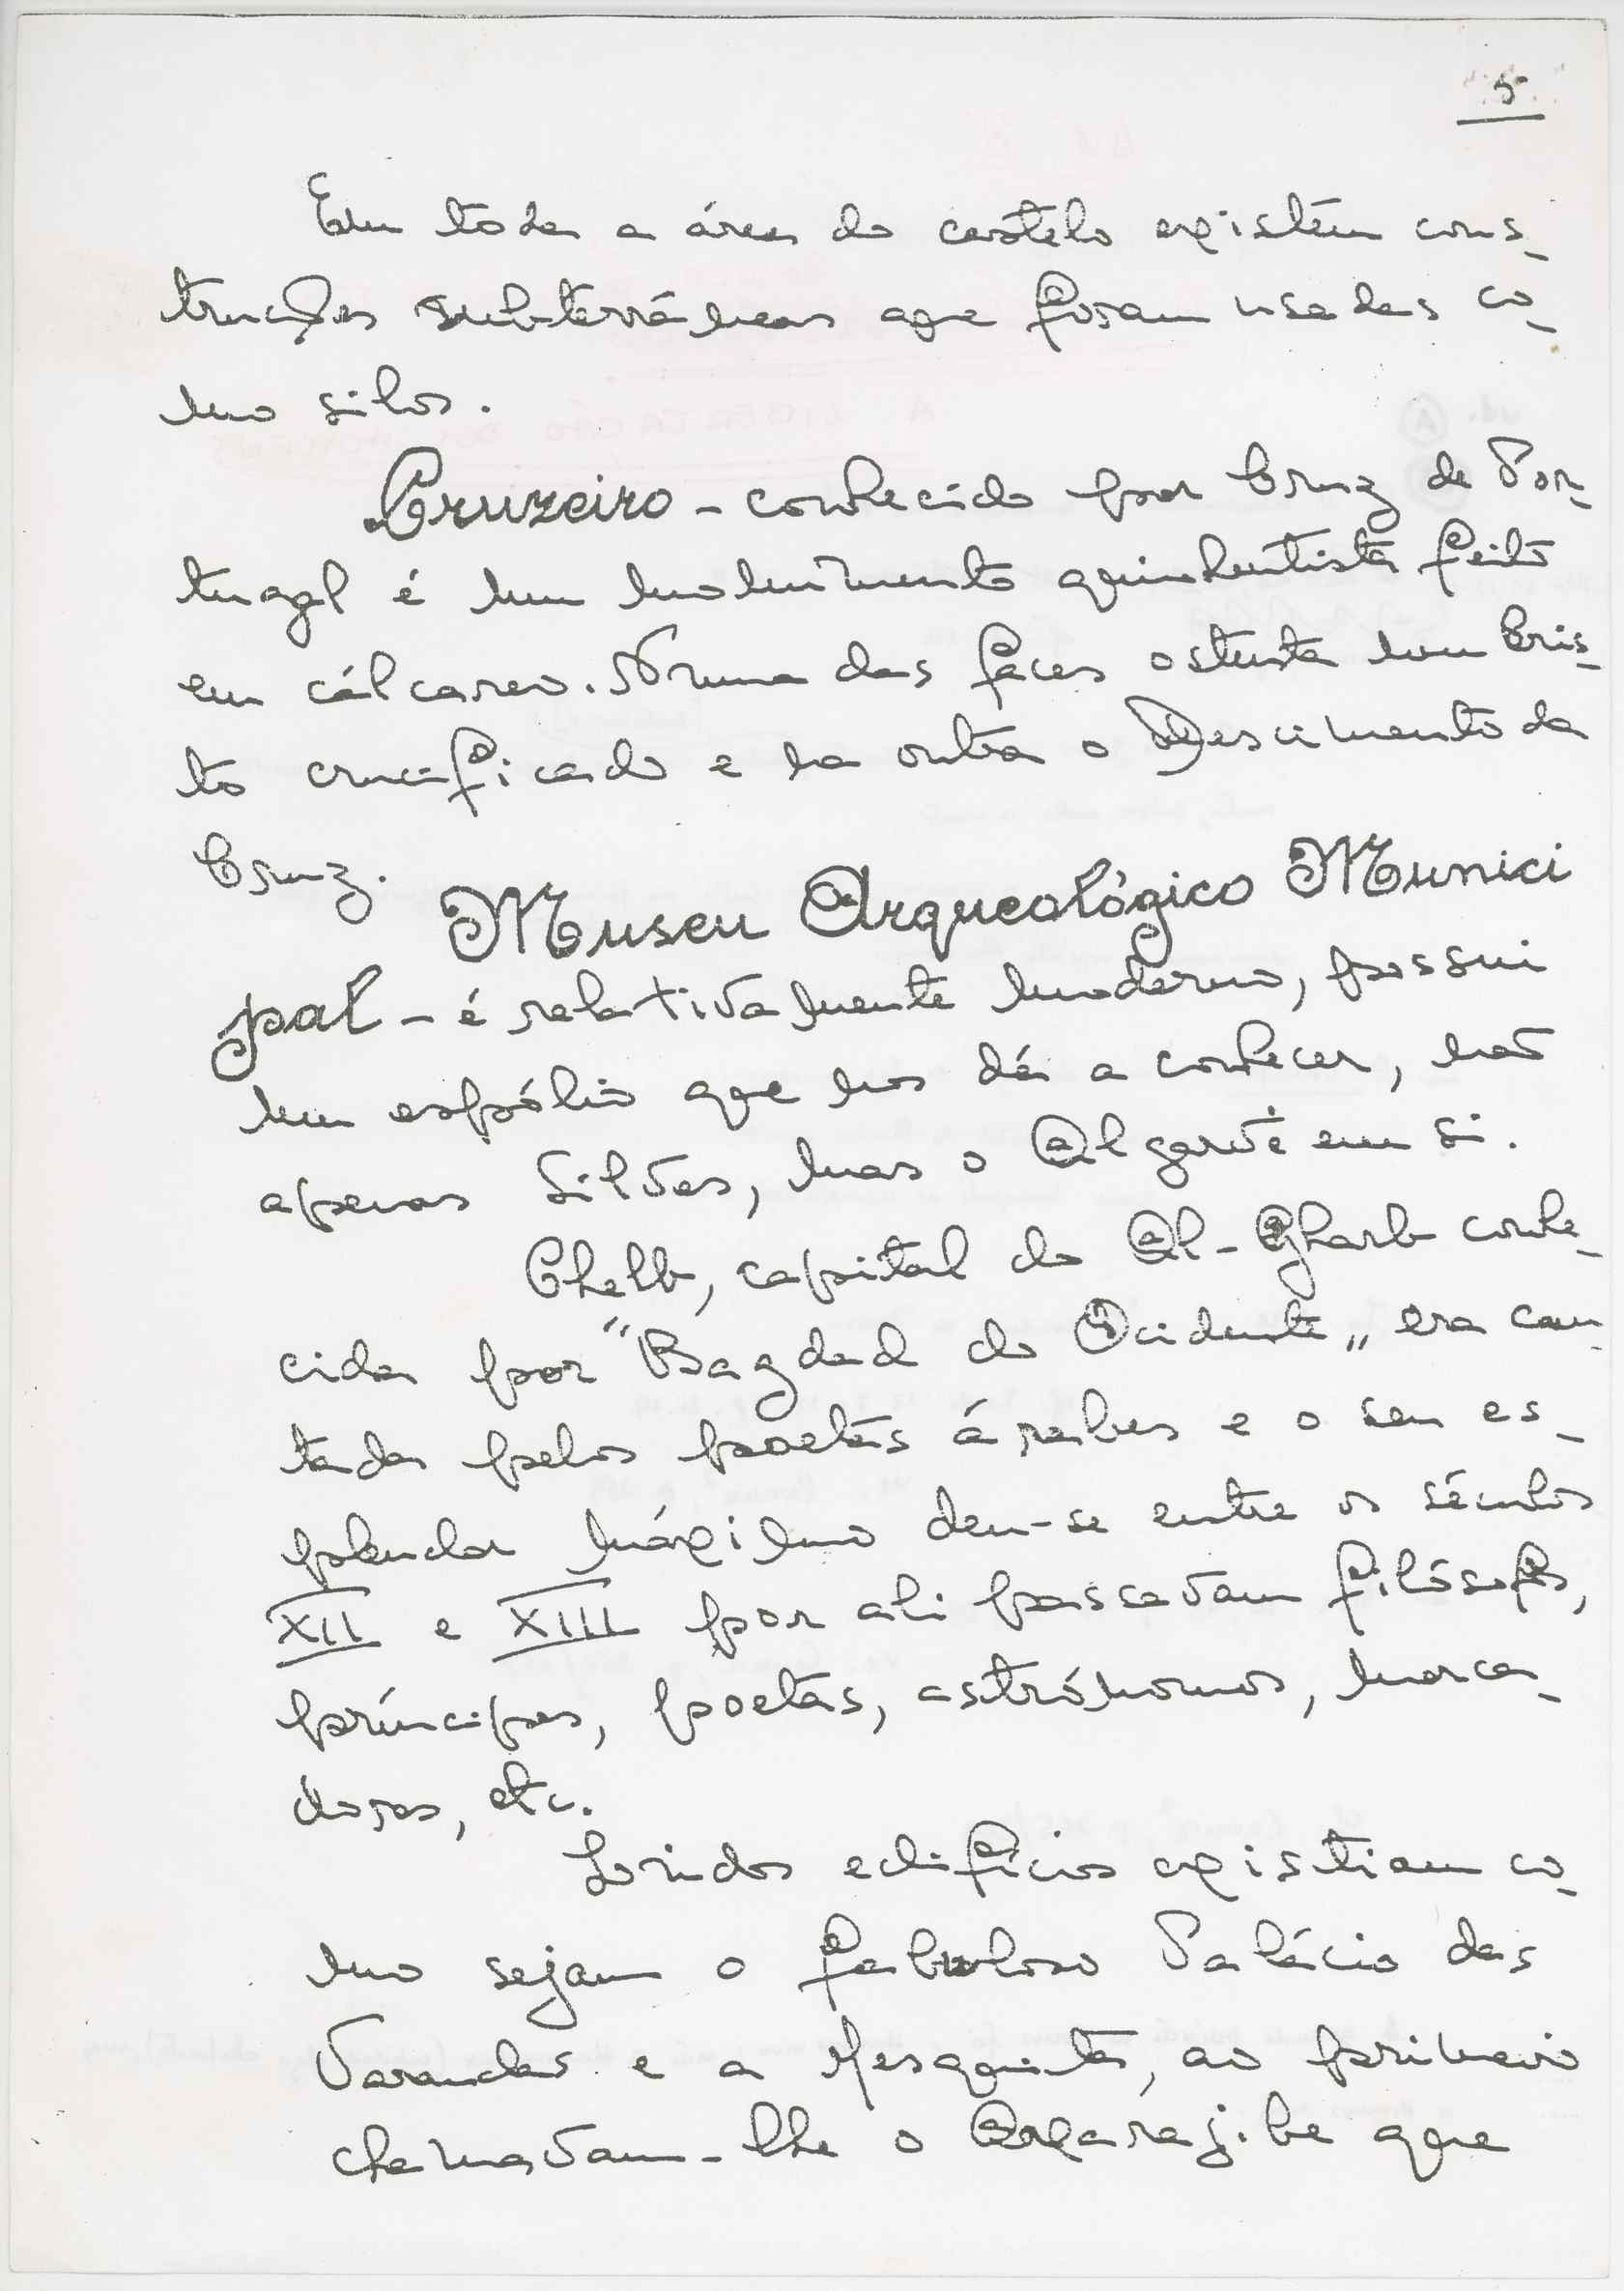 5
Em toda a área do castelo existem cons-
truções subterrâneas que foram usadas co-
mo silos.
Cruzeiro - conhecido por Cruz de Por-
tugal é um monumento quinhentista feito
em cálcareo. Numa das faces ostenta um Cris-
to crucificado e na outra o Descimento da
Cruz.
Museu Arqueológico Munici
pal - é relativamente moderno, possui
um espólio que nos dá a conhecer, não
apenas Silves, mas o Algarve em si.
Chelb, capital do Al-Gharb conhe-
cida por "Bagdad do Ocidente" era can-
tada pelos poetas árabes e o seu es-
plendor máximo deu-se entre os séculos
XII e XIII por ali passavam filósofos,
príncipes, poetas, astrónomos, merca-
dores, etc.
Lindos edifícios existiam co-
mo sejam o fabuloso Palácio das
Varandas e a Mesquita, ao primeiro
chamavam-lhe o Axarajibe que